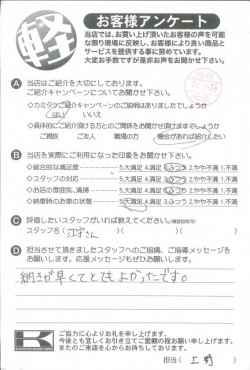 軽
お客様アンケート
当店では、お買い上げ頂いたお客様の声を可能
な限り現場に反映し、お客様により良い商品と
サービスを提供する事に努めています。
大変お手数ですが是非お声をお聞かせ下さい。
A 当店はご紹介を大切にしております。
ご紹介キャンペーンについてお聞かせ下さい。
ご紹介キャンペーンのご説明はありましたでしょうか
はい いいえ
ご親族 ご友人 職場の方 機会があれば紹介したい
B 当店を実際にご利用になった印象をお聞かせ下さい。
総合的な満足度 5.大満足 4.満足 3.ふつう 2.やや不満 1.不満
スタッフの対応 5.大満足 4.満足 3.ふつう 2.やや不満 1.不満
お店の雰囲気、清掃 5.大満足 4.満足 3.ふつう 2.やや不満 1.不満
納車時のお車の状態 5.大満足 4.満足 3.ふつう 2.やや不満 1.不満
C 評価したいスタッフがいれば教えてください。
スタッフ名
D 担当させて頂きましたスタッフへのご指摘、ご指導メッセージを
お願いします。応援メッセージもぜひお願いします。
納きが早くてとてもよかったです。
K
ご協力に心よりお礼を申し上げます。
今後とも宜しくお引き立てご愛顧の程お願い申し上げます。
またのご来店を心からお待ちしております。
担当( 上野 )